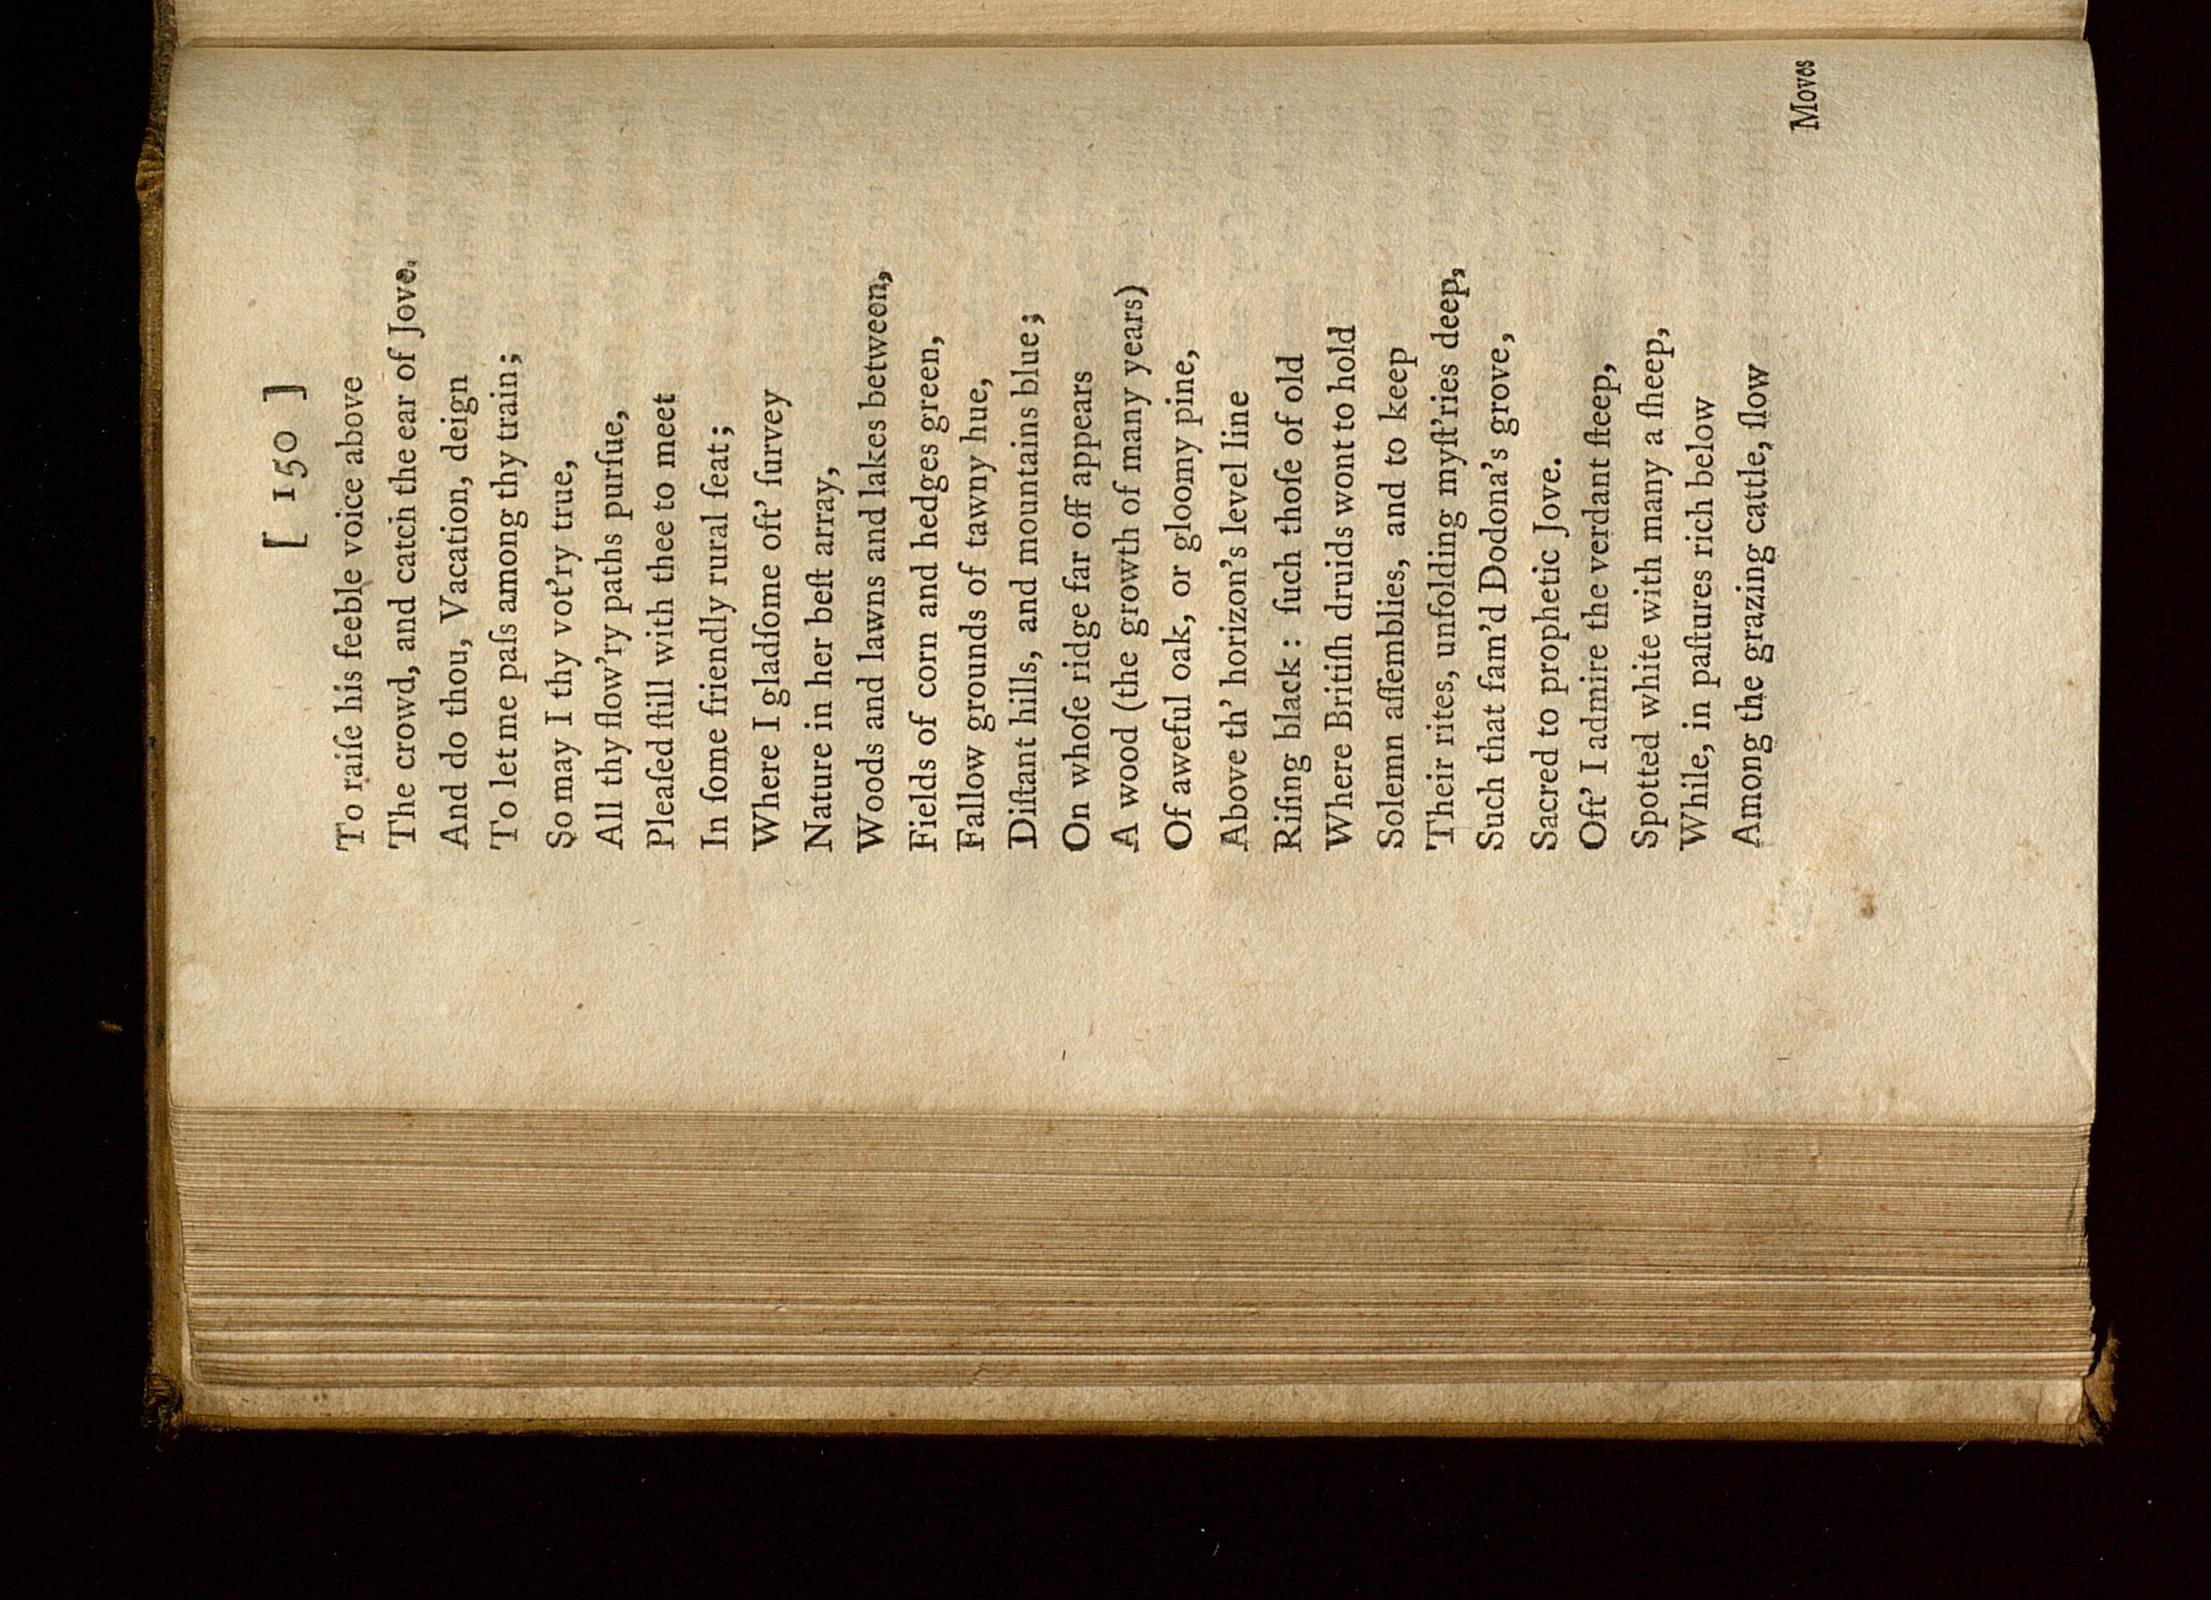 [ 150 ]
To raiſe his feeble voice above
The crowd, and catch the ear of Jove.
And do thou, Vacation, deign
To let me paſs among thy train;
So may I thy vot'ry true,
All thy flow'ry paths purſue,
Pleaſed ſtill with thee to meet
In ſome friendly rural ſeat;
Where I gladſome oft' ſurvey
Nature in her beſt array,
Woods and lawns and lakes between,
Fields of corn and hedges green,
Fallow grounds of tawny hue,
Diſtant hills, and mountains blue;
On whoſe ridge far off appears
A wood (the growth of many years)
Of aweful oak, or gloomy pine,
Above th' horizon's level line
Riſing black: ſuch thoſe of old
Where Britiſh druids wont to hold
Solemn aſſemblies, and to keep
Their rites, unfolding myſt'ries deep,
Such that fam'd Dodona's grove,
Sacred to prophetic Jove.
Oft' I admire the verdant ſteep,
Spotted white with many a ſheep,
While, in paſtures rich below
Among the grazing cattle, ſlow
Moves